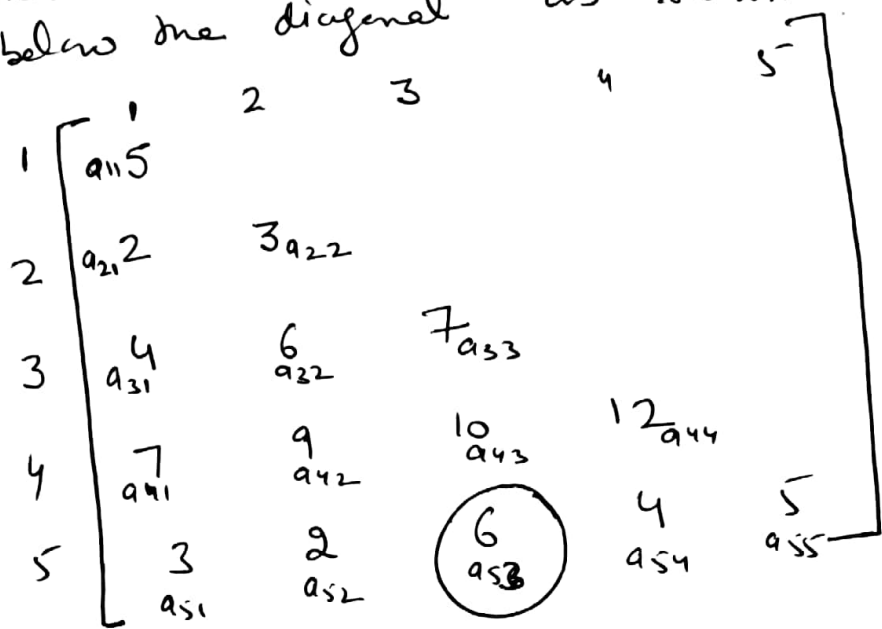 below the diagonal as
1 2 3 4 5
1 a11 5
2 a21 2 3 a22
3 4 a31 6 a32 7 a33
4 7 a41 9 a42 10 a43 12 a44
5 3 a51 2 a52 6 a53 4 a54 5 a55